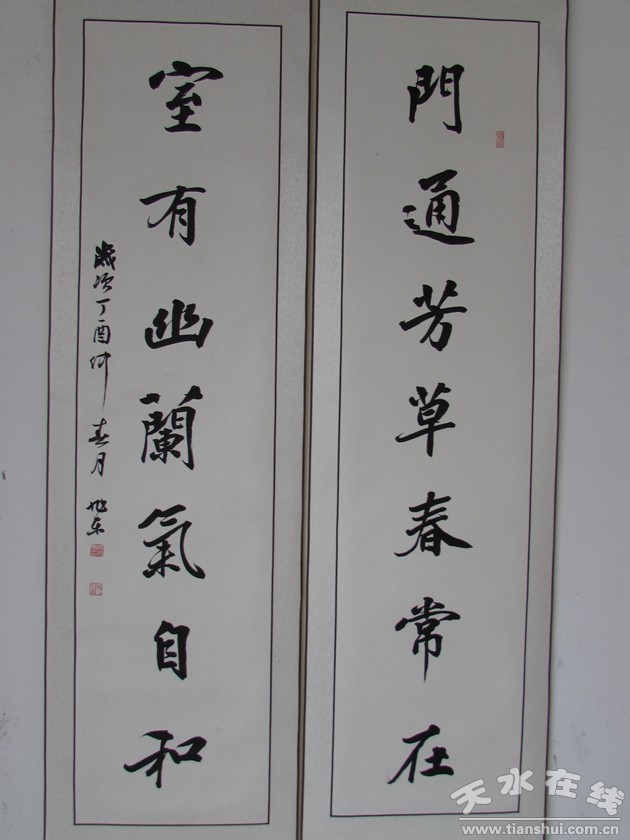 門通芳草春常在
室有幽蘭氣自和
歲次丁酉仲春月旭东
天水在线
www.tianshui.com.cn